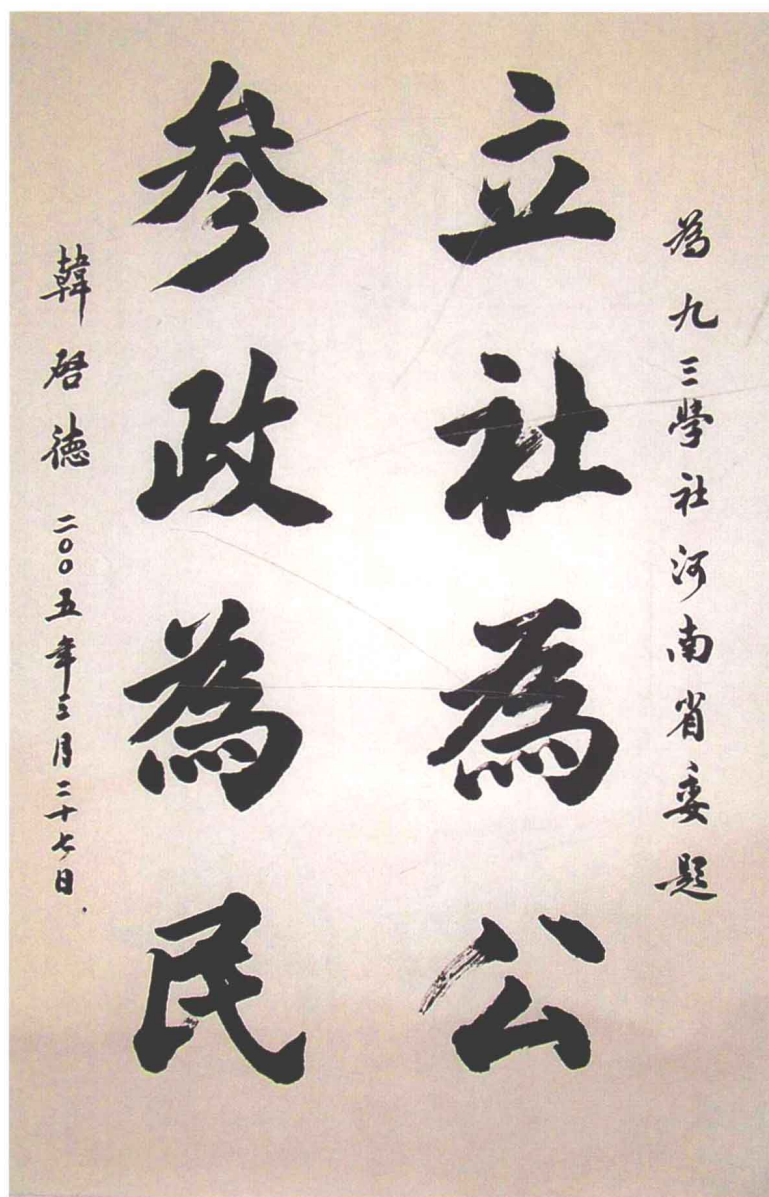 為九三學社河南省委題
立社為公
参政為民
韓啓德 二〇〇五年三月二十七日